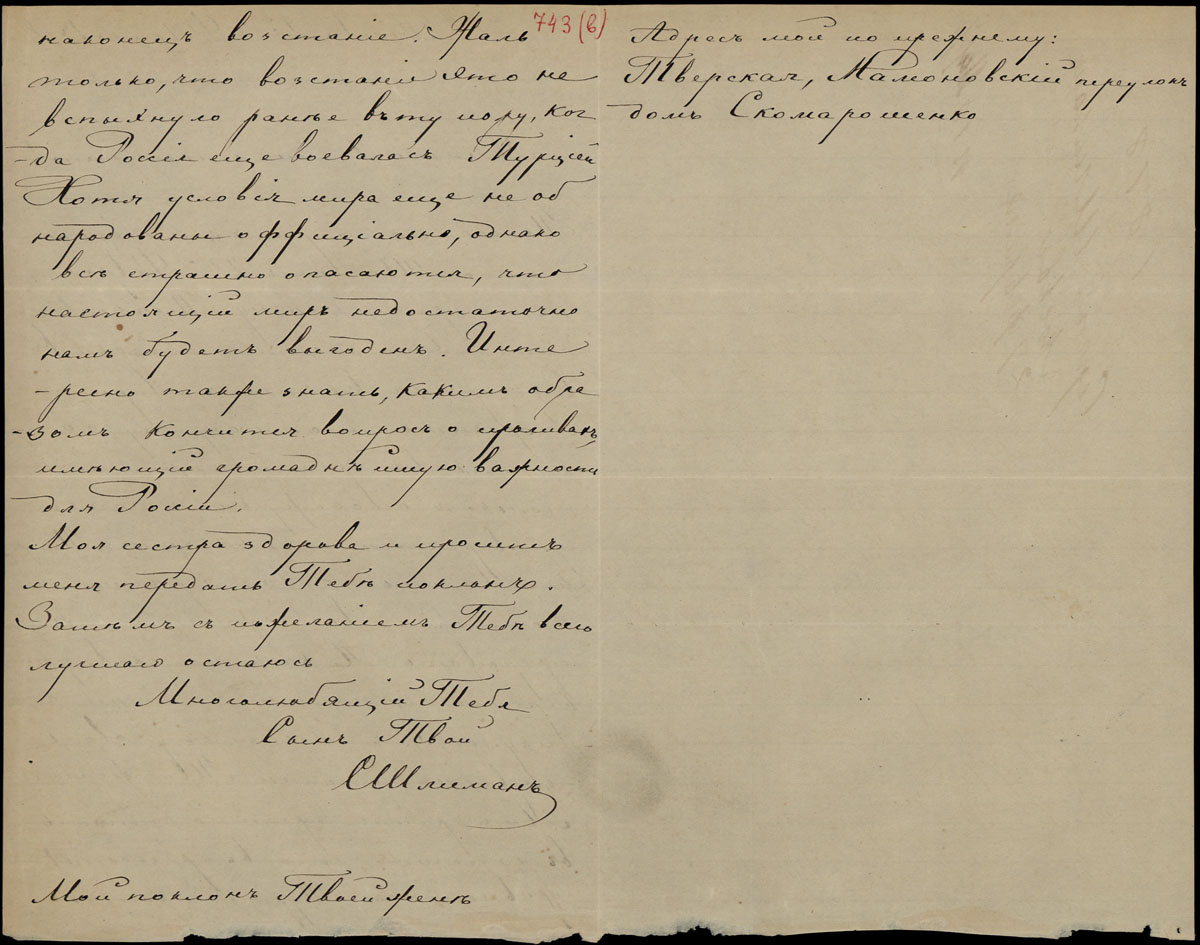 743 (в)
наконецъ возстаніе. Жаль
только, что возстаніе это не
вспыхнуло ранѣе въ ту пору, ког
-да Россія еще воевала съ Турціей
Хотя условія мира еще не об
народованы оффиціально, однако
всѣ страшно опасаются, что
настоящій миръ недостаточно
намъ будетъ выгоденъ. Инте
-ресно также знать, какимъ обра
-зомъ кончится вопросъ о проливахъ,
имѣющій громаднѣйшую важность
для Россіи.
Моя сестра здорова и проситъ
меня передать Тебѣ поклонъ.
Затѣмъ съ пожеланіемъ Тебѣ всего
лучшаго остаюсь
Многолюбящій Тебя
Сынъ Твой
СШлиманъ
Мой поклонъ Твоей женѣ
Адресъ мой по прежнему:
Тверская, Мамоновскій переулокъ
домъ Скомарошенко